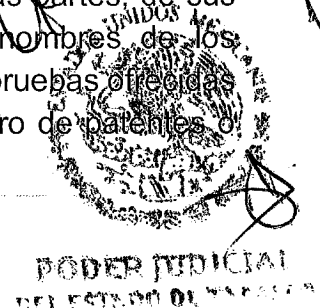 partes, de sus
nombres de los
pruebas ofrecidas
ro de patentes o
UNIDOS
PODER JUDICIAL
DEL ESTADO DE TABASCO